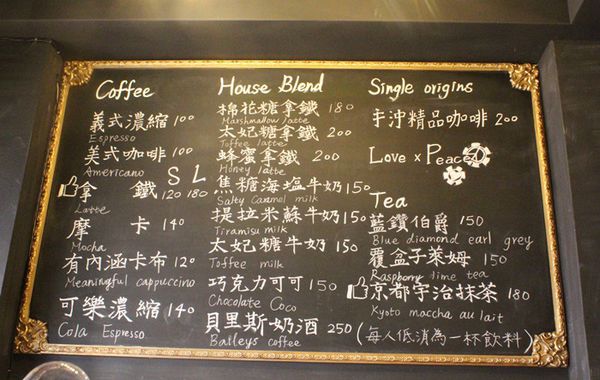 Coffee
義式濃縮 100
Espresso
美式咖啡 100
Americano
S L
拿鐵 120 180
Latte
摩卡 140
Mocha
有內涵卡布 120
Meaningful cappuccino
可樂濃縮 140
Cola Espresso
House Blend
棉花糖拿鐵 180
Marshmallow latte
太妃糖拿鐵 200
Toffee latte
蜂蜜拿鐵 200
Honey latte
焦糖海塩牛奶 150
Salty Caramel milk
提拉米蘇牛奶 150
Tiramisu milk
太妃糖牛奶 150
Toffee milk
巧克力可可 150
Chocolate Coco
貝里斯奶酒 250
Baileys coffee
Single origins
手沖精品咖啡 200
Love x Peace
Tea
藍鑽伯爵 150
Blue diamond earl grey
覆盆子萊姆 150
Raspberry lime tea
京都宇治抹茶 180
Kyoto maccha au lait
(每人低消為一杯飲料)